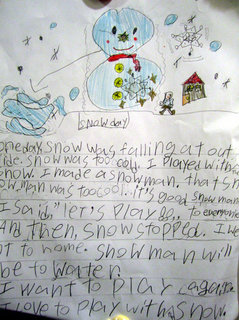 snow day
one day, snow was falling at out
side. snow was too cold. I played with
snow. I made a snowman. that sn
ow man was too cool.. it's good snowman
I said, "let's play
And then, snow stopped. I we
nt to home. snow man will
be to water.
I want to play again
I love to play with snow.